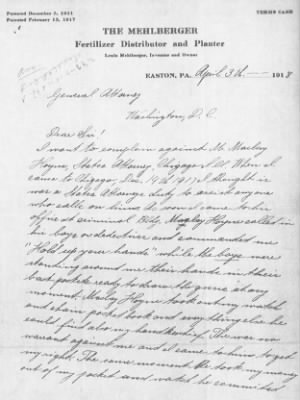 Patented December 5, 1911
Patented February 13, 1917
TERMS CASH
THE MEHLBERGER
Fertilizer Distributor and Planter
Louis Mehlberger, Inventor and Owner
EASTON, PA. April 3th 1918
General Attorney
Washington D. C.
Dear Sir!
I want to complain against Mr. Macley
Hoyne, States Attorney Chicago Ill. When I
came to Chicago, Jan 1917 I thought it
was a States Attorneys duty to see it anyone
who call on him. As soon I came to his
office at criminal Bldg. Macley Hoyne called in
his boys or dedectives and commanded me
"Hold up your hands" while the boys were
standing around me their hands in their
back pockets ready to share the guns at any
moment. Macley Hoyne took out my watch
and chain pocket book and everything else he
could find also my handkerchief. There was no
warrant against me and I came to him to get
my right. The same moment he took my money
out of my pocket and watch he committed